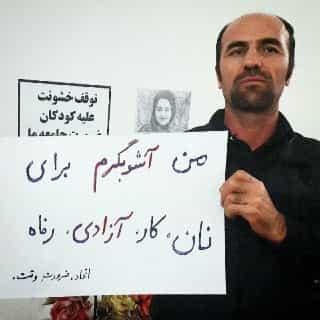 توقف خشونت
علیه کودکان
ضرورت جامعه ما
من آشوبگرم برای
نان، کار، آزادی، رفاه
اتحاد، ضرورت وقت.